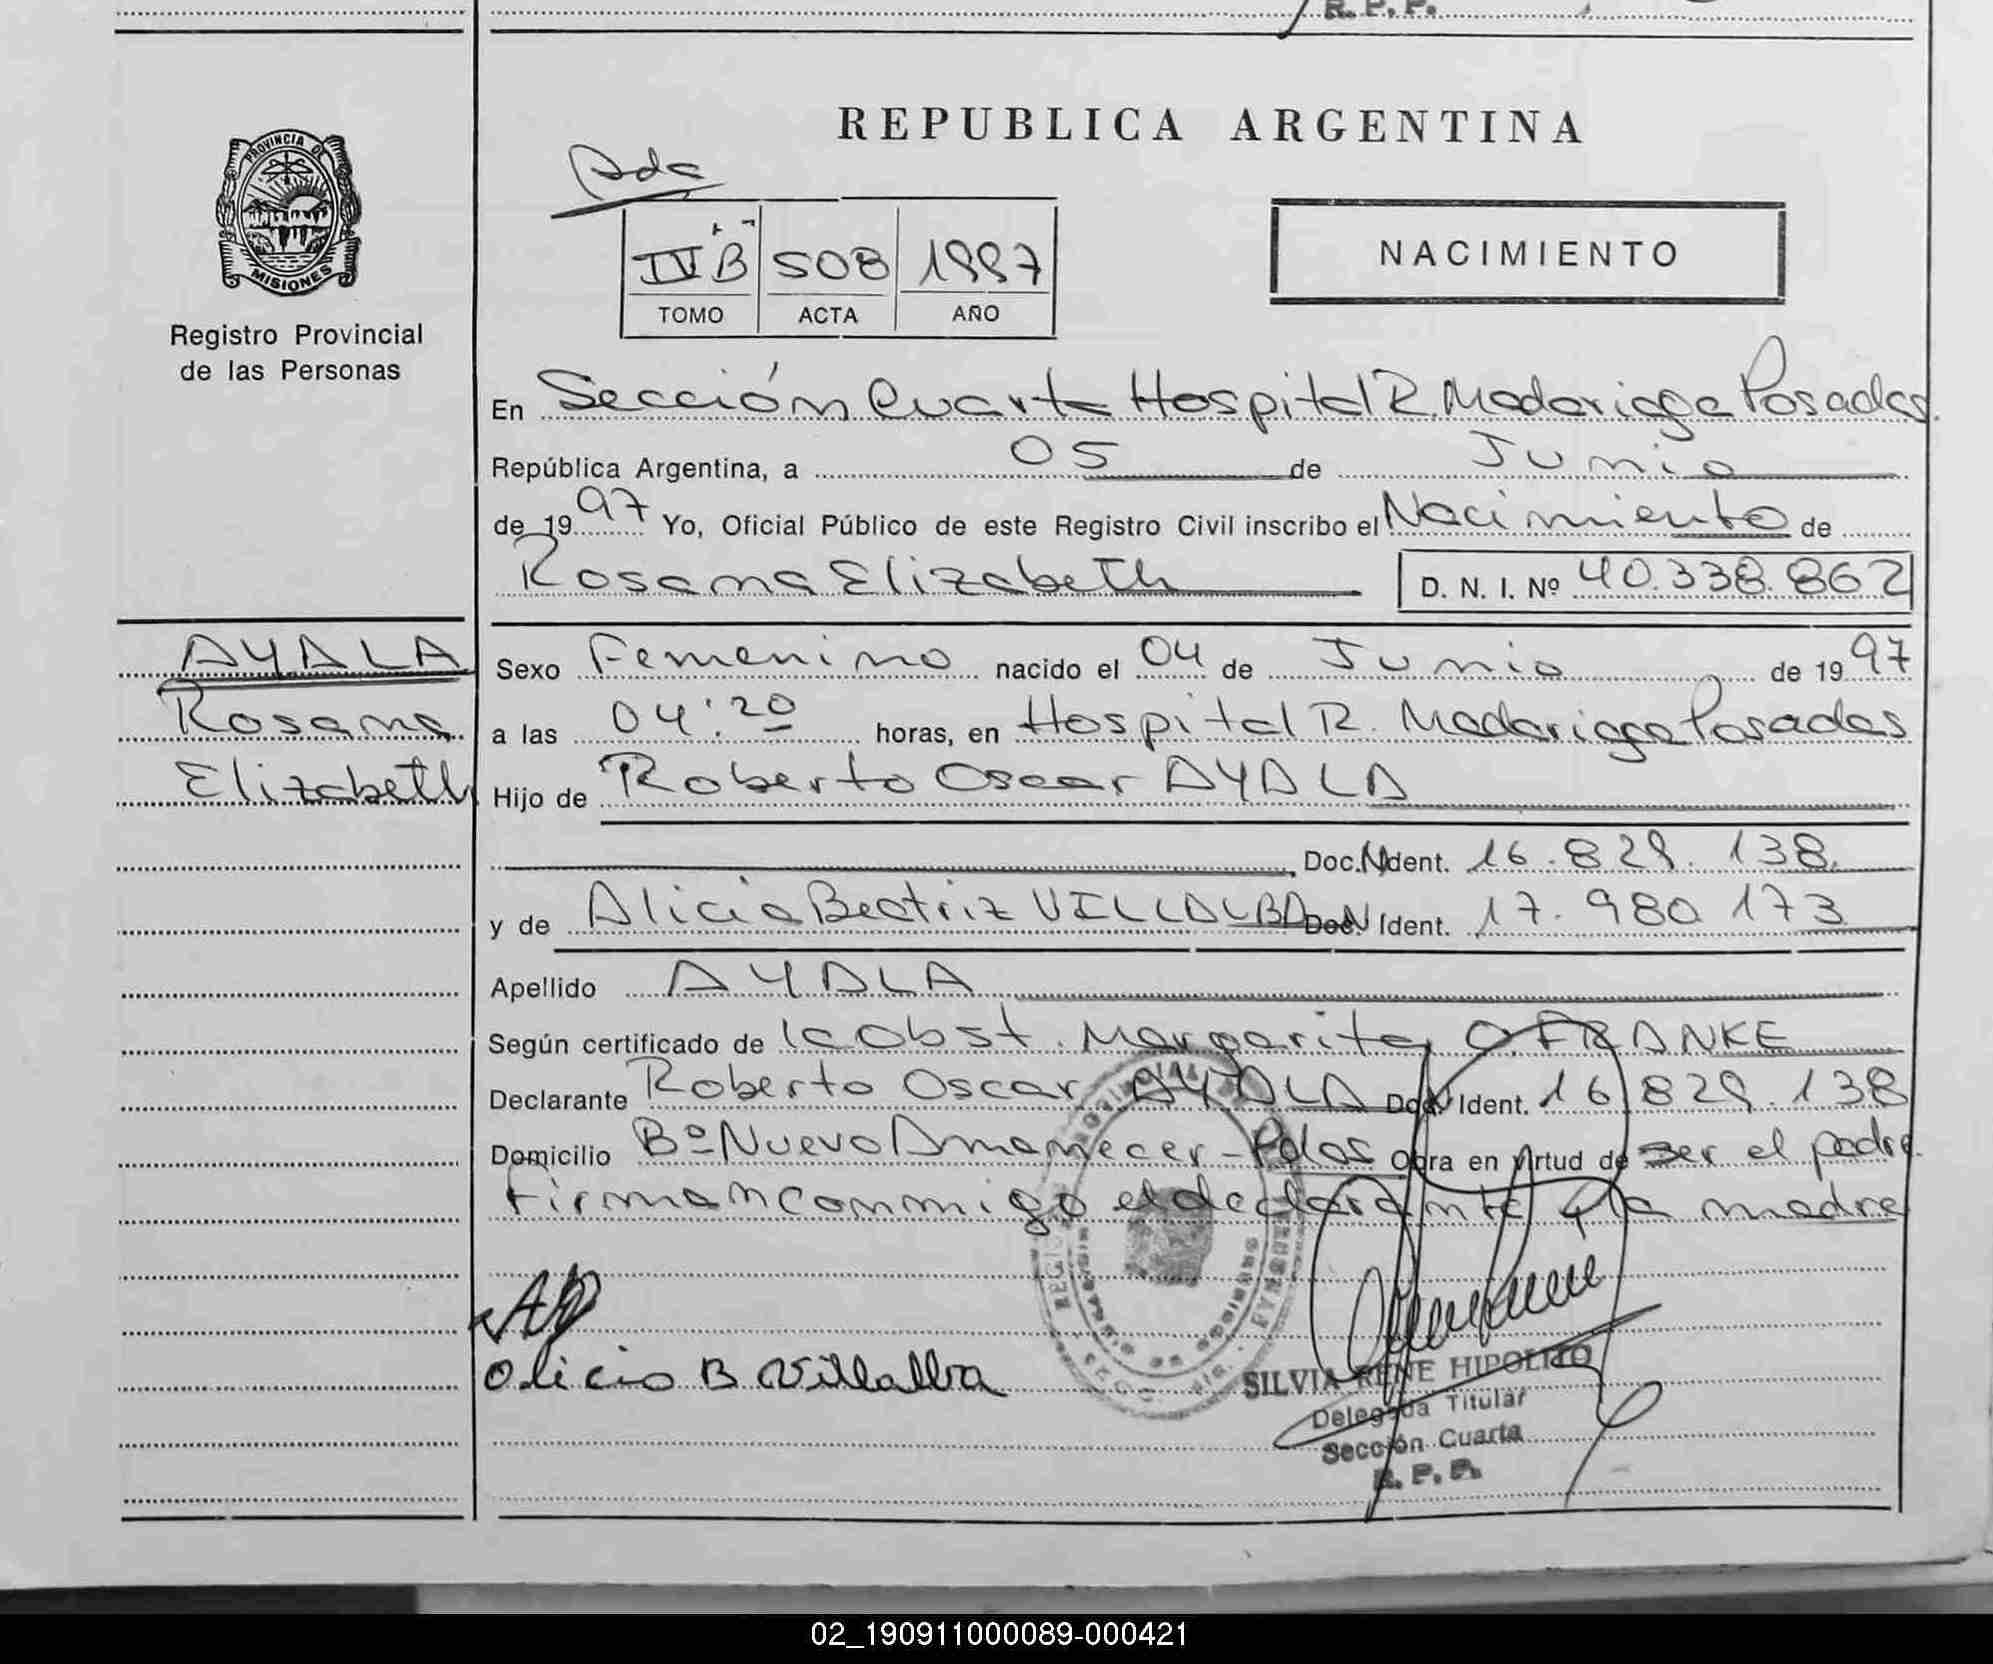 R. P. P.
REPUBLICA ARGENTINA
PROVINCIA DE
MISIONES
Registro Provincial
de las Personas
Pdas
IV B 508 1997
TOMO ACTA AÑO
NACIMIENTO
En Sección Cuarta Hospital R. Madariaga Posadas
República Argentina, a 05 de Junio
de 1997 Yo, Oficial Público de este Registro Civil inscribo el Nacimiento de
Rosana Elizabeth D. N. I. Nº 40.338.862
AYALA
Rosana
Elizabeth
Sexo Femenino nacido el 04 de Junio de 1997
a las 04:20 horas, en Hospital R. Madariaga Posadas
Hijo de Roberto Oscar AYALA
Doc. N Ident. 16.829.138
y de Alicia Beatriz VILLALBA Doc. N Ident. 17.980.173
Apellido AYALA
Según certificado de la Obst. Margarita O. FRANKE
Declarante Roberto Oscar AYALA Doc. N Ident. 16.829.138
Domicilio Bº Nuevo Amanecer - Pdas Obra en virtud de ser el padre
Firman conmigo el declarante y la madre
Alicia B Villalba
SILVIA RENE HIPOLITO
Delegada Titular
Sección Cuarta
R. P. P.
02_190911000089-000421